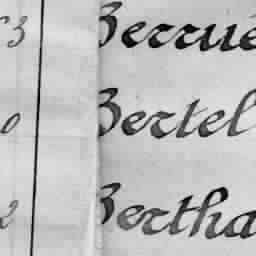 3 Berrué
0 Bertel
2 Bertha